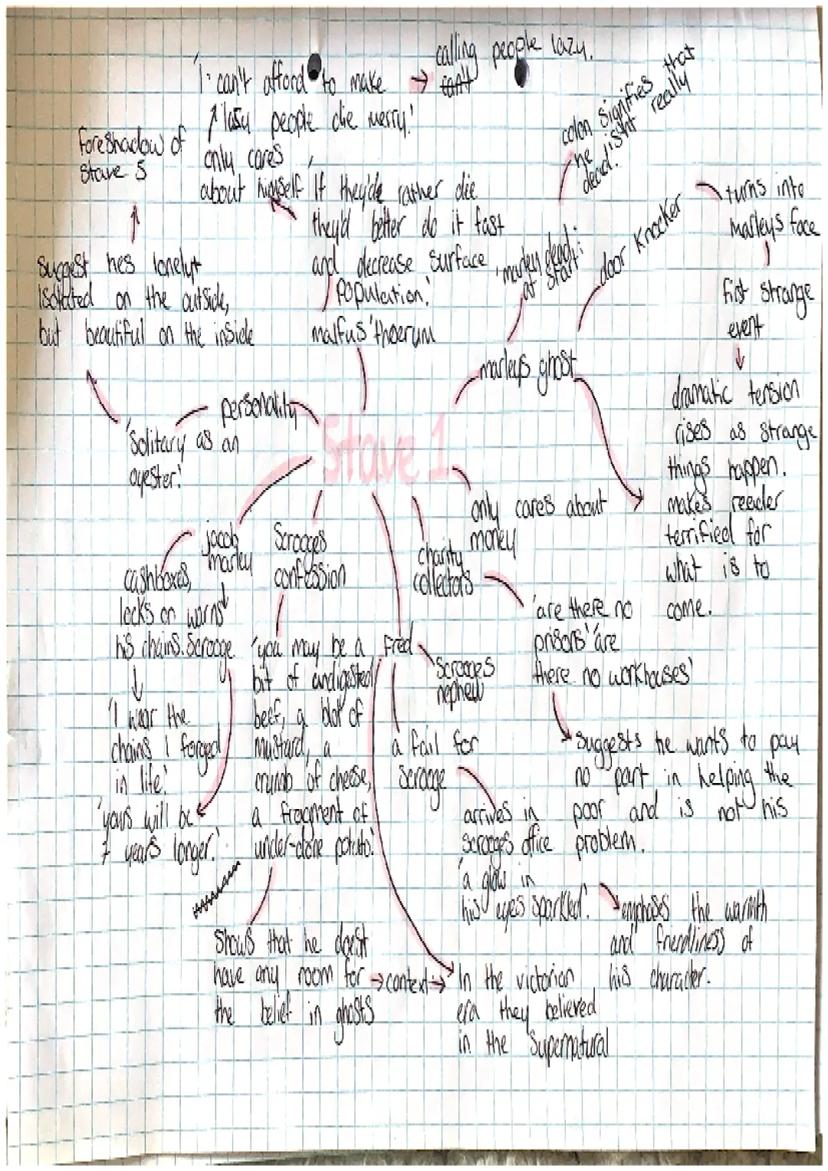 'I can't afford to make
lasy people die merry.'
→ calling people lazy.
only cares
about himself
foreshadow of
stave 5
'If they'de rather die
they'd better do it fast
and decrease surface
population.'
malfus' theorum
suggest hes lonely+
isolated on the outside,
but beautiful on the inside
personality
'solitary as an
oyester.'
Stave 1
colon signifies that
he isnt really
dead.
'marley dead:'
at start
door knocker
turns into
marleys face
fist strange
event
marleys ghost
dramatic tension
rises as strange
things happen.
makes reader
terrified for
what is to
come.
only cares about
money
charity
collectors
'are there no
prisons' 'are
there no workhouses'
suggests he wants to pay
no part in helping the
poor and is not his
problem.
jacob
marley
cashboxes,
locks or warns
his chains. Scrooge
'I wear the
chains I forged
in life.'
'yours will be
7 years longer.'
Scrooges
confession
'you may be a
bit of undigested
beef, a blot of
mustard, a
crumb of cheese,
a fragment of
under-done potato.'
shows that he doesnt
have any room for
the belief in ghosts
→ context →
In the victorian
era they believed
in the supernatural
Fred
Scrooges
nephew
a fail for
Scrooge
arrives in
scrooges office
'a glow in
his eyes sparkled'.
emphases the warmth
and friendliness of
his character.